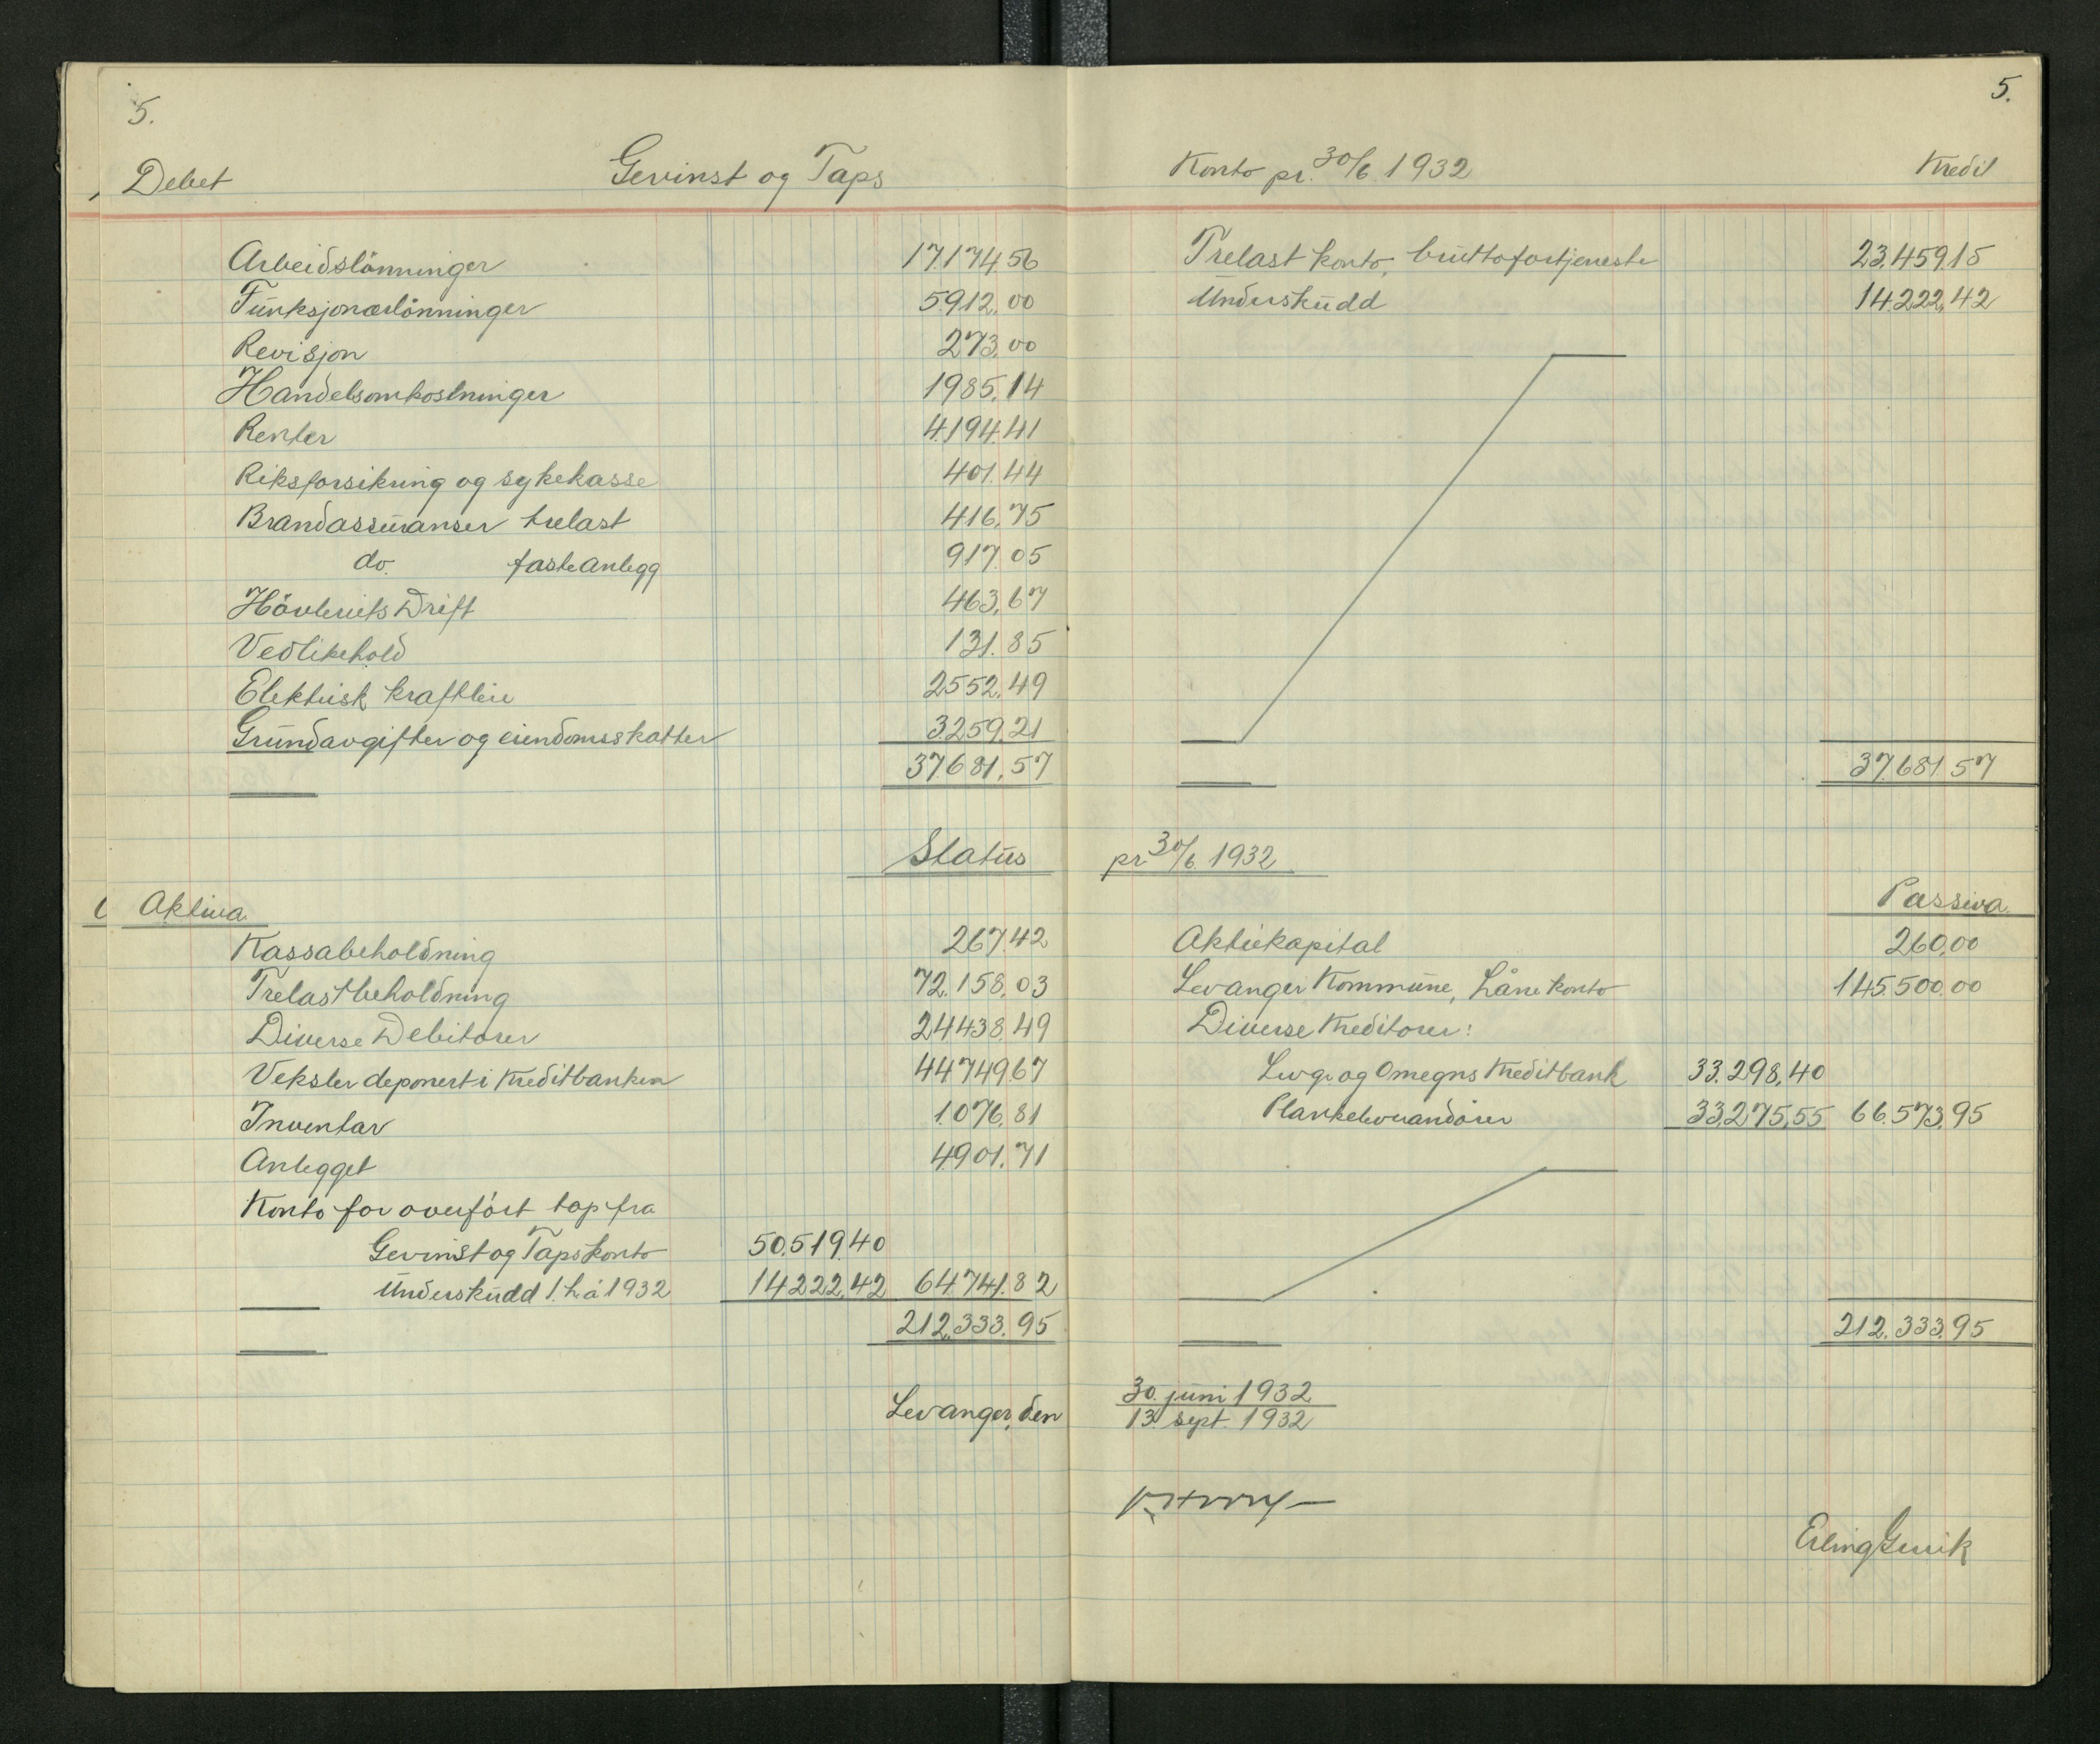 5.
Debet Gevinst og Taps
Arbeidslönninger 17.174.56
Funksjonærlönninger 5.912.00
Revisjon 273.00
Handelsomkostninger 1985.14
Renter 4.194.41
Riksforsikring og sykekasse 401.44
Brandassuranser trelast 416.75
do. faste anlegg 917.05
Hövleriets Drift 463.67
Vedlikehold 131.85
Elektrisk kraftleie 2552.49
Grundavgifter og eiendomsskatter 3259.21
37.681.57
Status
Aktiva
Kassabeholdning 267.42
Trelastbeholdning 72.158.03
Diverse Debitorer 24.438.49
Veksler deponert i Kreditbanken 44.749.67
Inventar 1.076.81
Anlegget 4.901.71
Konto for overfört tap fra
Gevinst og Tapskonto 50.519.40
Underskudd 1. h.å 1932 14.222.42 64.741.82
212.333.95
Levanger, den
5.
Konto pr. 30/6. 1932 Kredit
Trelast konto, bruttofortjeneste 23.459.15
Underskudd 14.222.42
37.681.57
pr. 30/6. 1932
Passiva
Aktiekapital 260.00
Levanger Kommune, Lånekonto 145.500.00
Diverse Kreditorer:
Levgr. og Omegns Kreditbank 33.298.40
Plankeleverandörer 33.275.55 66.573.95
212.333.95
30. juni 1932
13. sept. 1932
Erling